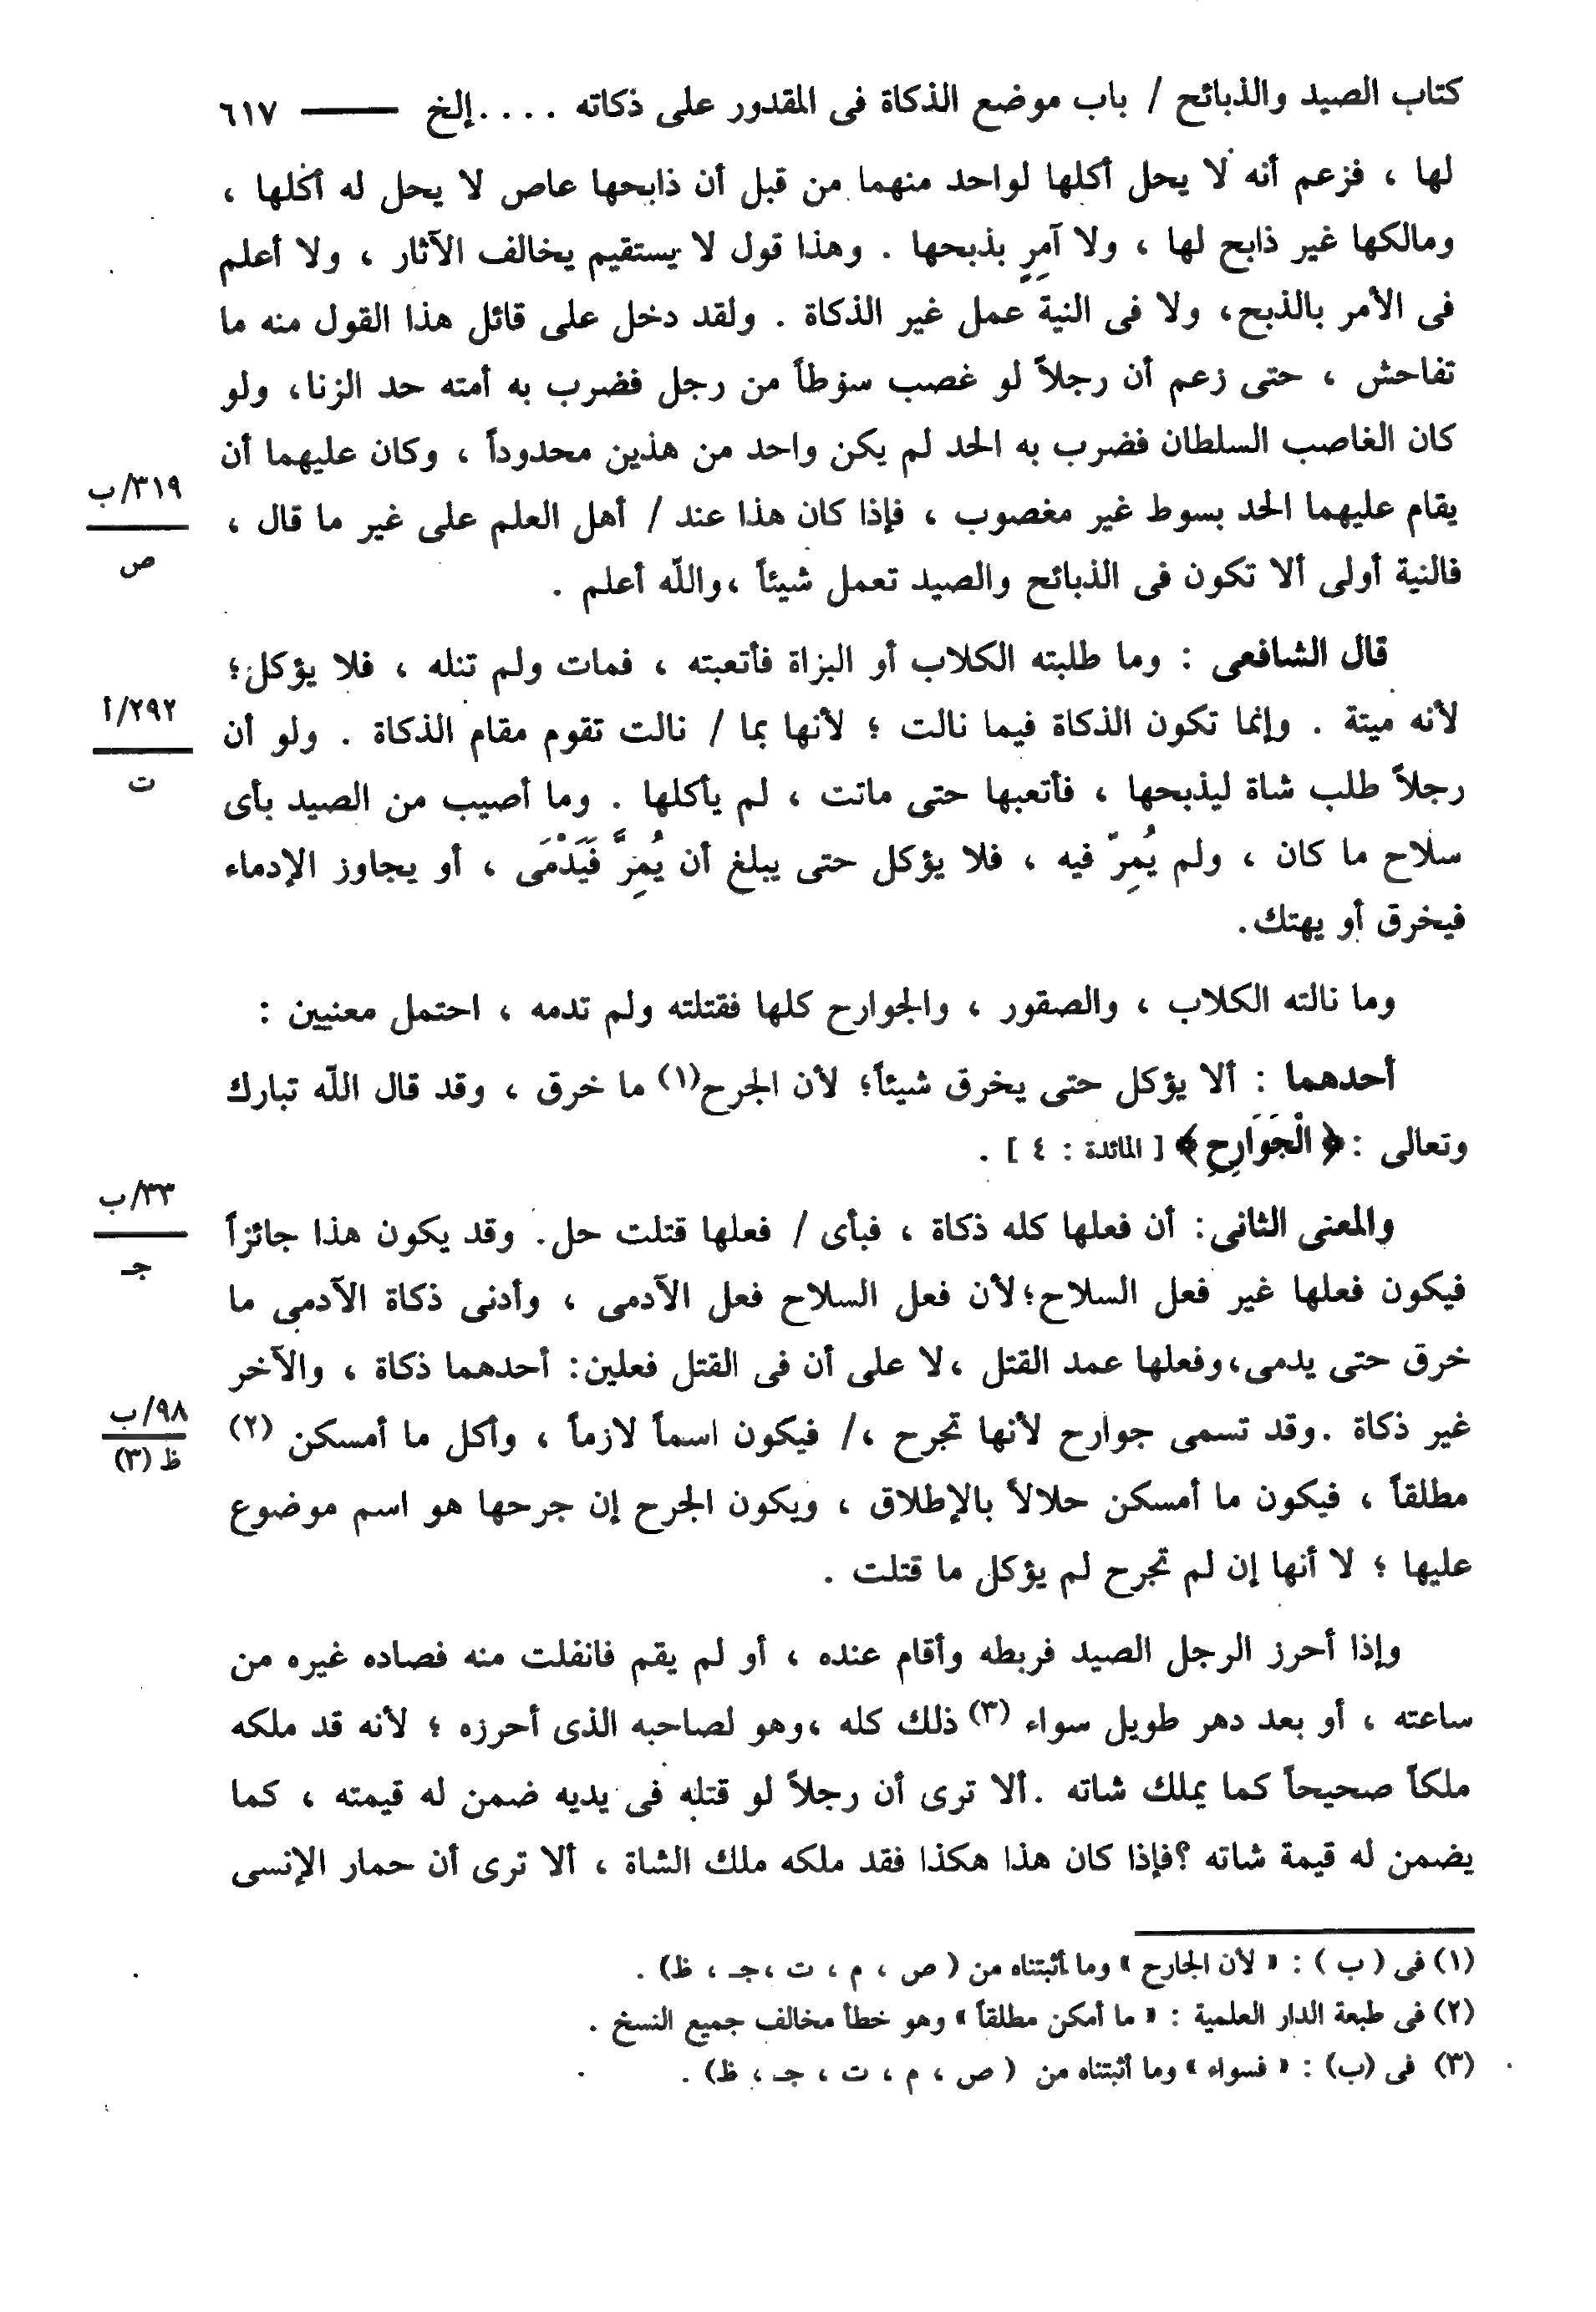 كتاب الصيد والذبائح / باب موضع الذكاة فى المقدور على ذكاته . . . .إلخ ــــــ ٦١٧
لها ، فزعم أنه لا يحل أكلها لواحد منهما من قبل أن ذابحها عاص لا يحل له أكلها ،
ومالكها غير ذابح لها ، ولا آمِرٍ بذبحها . وهذا قول لا يستقيم يخالف الآثار ، ولا أعلم
فى الأمر بالذبح، ولا فى النية عمل غير الذكاة . ولقد دخل على قائل هذا القول منه ما
تفاحش ، حتى زعم أن رجلاً لو غصب سوطاً من رجل فضرب به أمته حد الزنا، ولو
كان الغاصب السلطان فضرب به الحد لم يكن واحد من هذين محدوداً ، وكان عليهما أن
٣١٩/ب
يقام عليهما الحد بسوط غير مغصوب ، فإذا كان هذا عند / أهل العلم على غير ما قال ،
ص
فالنية أولى ألا تكون فى الذبائح والصيد تعمل شيئاً ،والله أعلم .
قال الشافعى : وما طلبته الكلاب أو البزاة فأتعبته ، فمات ولم تنله ، فلا يؤكل؛
٢٩٢/أ
لأنه ميتة . وإنما تكون الذكاة فيما نالت ؛ لأنها بما / نالت تقوم مقام الذكاة . ولو أن
ت
رجلاً طلب شاة ليذبحها ، فأتعبها حتى ماتت ، لم يأكلها . وما أصيب من الصيد بأى
سلاح ما كان ، ولم يُمِرّ فيه ، فلا يؤكل حتى يبلغ أن يُمِرَّ فَيَدْمَى ، أو يجاوز الإدماء
فيخرق أو يهتك.
وما نالته الكلاب ، والصقور ، والجوارح كلها فقتلته ولم تدمه ، احتمل معنيين :
أحدهما : ألا يؤكل حتى يخرق شيئاً؛ لأن الجرح(١) ما خرق ، وقد قال الله تبارك
وتعالى :﴿ الْجَوَارِحِ ﴾ [ المائدة : ٤ ] .
٣٣/ب
والمعنى الثانى: أن فعلها كله ذكاة ، فبأى / فعلها قتلت حل. وقد يكون هذا جائزاً
جـ
فيكون فعلها غير فعل السلاح؛لأن فعل السلاح فعل الآدمى ، وأدنى ذكاة الآدمى ما
خرق حتى يدمى،وفعلها عمد القتل ،لا على أن فى القتل فعلين: أحدهما ذكاة ، والآخر
٩٨/ب
غير ذكاة .وقد تسمى جوارح لأنها تجرح ،/ فيكون اسماً لازماً ، وأكل ما أمسكن (٢)
ظ (٣)
مطلقاً ، فيكون ما أمسكن حلالاً بالإطلاق ، ويكون الجرح إن جرحها هو اسم موضوع
عليها ؛ لا أنها إن لم تجرح لم يؤكل ما قتلت .
وإذا أحرز الرجل الصيد فربطه وأقام عنده ، أو لم يقم فانفلت منه فصاده غيره من
ساعته ، أو بعد دهر طويل سواء (٣) ذلك كله ،وهو لصاحبه الذى أحرزه ؛ لأنه قد ملكه
ملكاً صحيحاً كما يملك شاته .ألا ترى أن رجلاً لو قتله فى يديه ضمن له قيمته ، كما
يضمن له قيمة شاته ؟فإذا كان هذا هكذا فقد ملكه ملك الشاة ، ألا ترى أن حمار الإنسى
(١) فى ( ب ) : « لأن الجارح » وما أثبتناه من ( ص ، م ، ت ،جـ ، ظ) .
(٢) فى طبعة الدار العلمية : « ما أمكن مطلقاً » وهو خطأ مخالف جميع النسخ .
(٣) فى (ب) : « فسواء » وما أثبتناه من ( ص ، م ، ت ، جـ ، ظ) .